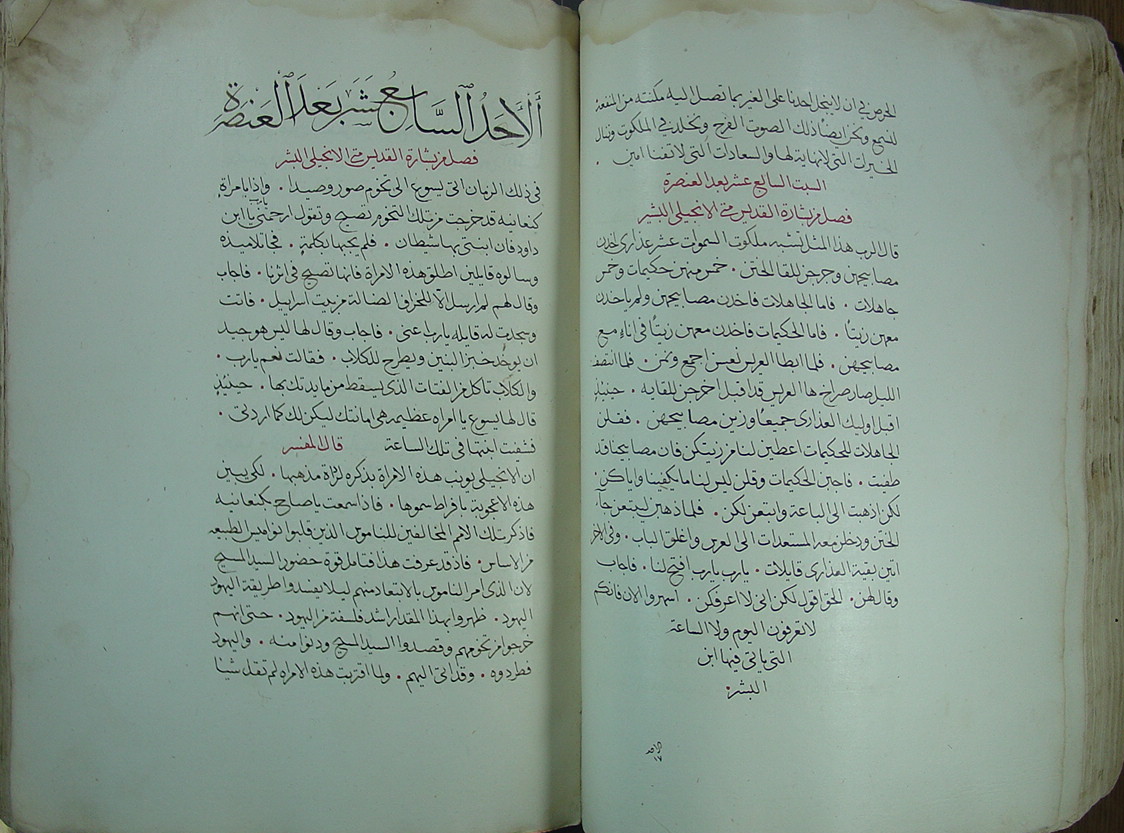 الحرص في ان لا يبخل احدنا على الغير بما تصل اليه مكنته من المنفعة
للجميع ونحن ايضًا ذلك الصوت الفرح ونخلد في الملكوت وننال
الخيرات التي لا نهاية لها والسعادات التي لا تفنا امين .
السبت السابع عشر بعد العنصرة
فصل من بشارة القديس متى الانجيلي البشير
قال الرب هذا المثل تشبه ملكوت السموات عشر عذارى اخذن
مصابيحهن وخرجن للقا الختن . خمس منهن حكيمات وخمس
جاهلات . فاما الجاهلات فاخذن مصابيحهن ولم ياخذن
معهن زيتًا . فاما الحكيمات فاخذن معهن زيتًا في اناء مع
مصابيحهن . فلما ابطا العريس نعسن اجمع ونمن . فلما انتصف
الليل صار صراخ ها العريس قد اقبل اخرجن للقايه . حينيذٍ
اقبل اوليك العذارى جميعًا وزين مصابيحهن . فقلن
الجاهلات للحكيمات اعطين لنا من زيتكن فان مصابيحنا قد
طفيت . فاجبن الحكيمات وقلن ليس لنا ما يكفينا واياكن .
لكن اذهبت الى الباعة وابتعن لكن . فلما ذهبن ليبتعن جآ
الختن ودخلن معه المستعدات الى العرس واغلق الباب . وفي الاخر
اتين بقية العذارى قايلات . يا رب يا رب افتح لنا . فاجاب
وقال لهن . الحق اقول لكن اني لا اعرفكن . اسهروا الان فانكم
لا تعرفون اليوم ولا الساعة
التي ياتي فيها ابن
البشر .
الاحد
١٧
الاحد السابع عشر بعد العنصرة
فصل من بشارة القديس متى الانجيلي البشر
في ذلك الزمان اتى يسوع الى تخوم صور وصيدا . واذا بامراة
كنعانيه قد خرجت من تلك التخوم تصيح وتقول ارحمني يا ابن
داود فان ابنتي بها شيطان . فلم يجبها بكلمة . فجا تلاميذه
وسالوه قايلين اطلق هذه الامراة فانها تصيح في اثرنا . فاجاب
وقال لهم لم ارسل الا للخراف الضالة من بيت اسراييل . فاتت
وسجدت له قايله يا رب اعني . فاجاب وقال لها ليس هو جيد
ان يوخذ خبز البنين ويطرح للكلاب . فقالت نعم يا رب .
والكلاب تاكل من الفتات الذي يسقط من مايدة اربابها . حينيذٍ
قال لها يسوع يا امراه عظيمه هي امانتك ليكن لك كما اردتي .
فشفيت ابنتها في تلك الساعة قال المفسر
ان الانجيلي يونب هذه الامراة بذكره لرداة مذهبها . لكي يبين
هذه الاعجوبة بافراط سموها . فاذا سمعت يا صاح بكنعانيه
فاذكر تلك الامم المخالفين للناموس الذين قلبوا نواميس الطبيعه
من الاساس . فاذ قد عرفت هذا فتامل قوة حضور السيد المسيح
لان الذي امر الناموس بالابتعاد منهم ليلا يفسدوا طريقة اليهود
اليهود . ظهروا بهذا المقدار اشد فلسفة من اليهود . حتى انهم
خرجوا من تخومهم وقصدوا السيد المسيح ودنوا منه . واليهود
فطردوه . وقد اتى اليهم . ولما اقتربت هذه الامراه لم تقل شيًا